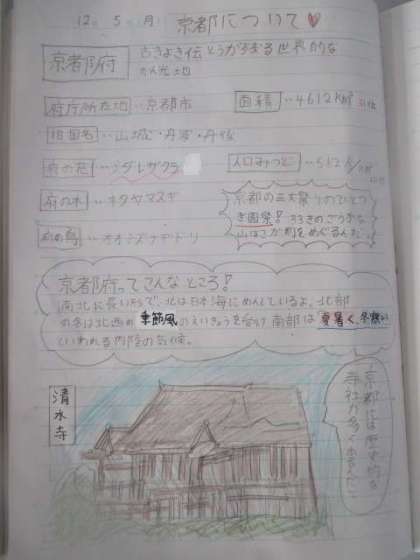 12 5 月 京都について
京都府
古きよき伝とうが残る世界的な
かん光地
府庁所在地…京都市
面積…4612km²
旧国名…山城・丹波・丹後
府の花…シダレザクラ
人口みつど
府の木…キタヤマスギ
京都の三大祭りのひとつ
ぎ園祭!33きのごうかな
山ほこが町をめぐるんだ
府の鳥…オオミズナギドリ
京都府ってこんなところ!
南北に長い形で、北は日本海にめんしているよ。北部
の冬は北西の季節風のえいきょうを受け南部は夏暑く、冬寒い
といわれる内陸の気候。
清水寺
京都には歴史的な
寺社が多く